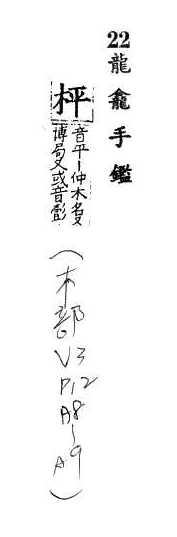 22龍龕手鑑
枰
音平—仲木名又
博局又或音彭
(木部V3P12A8~A9)